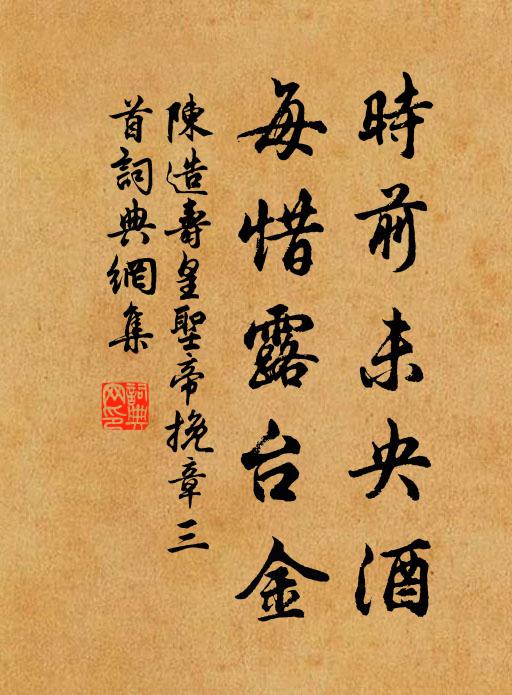 時前未央酒
每惜露台金
陳造壽皇聖帝挽章三
首詞典網集
詞典
网印